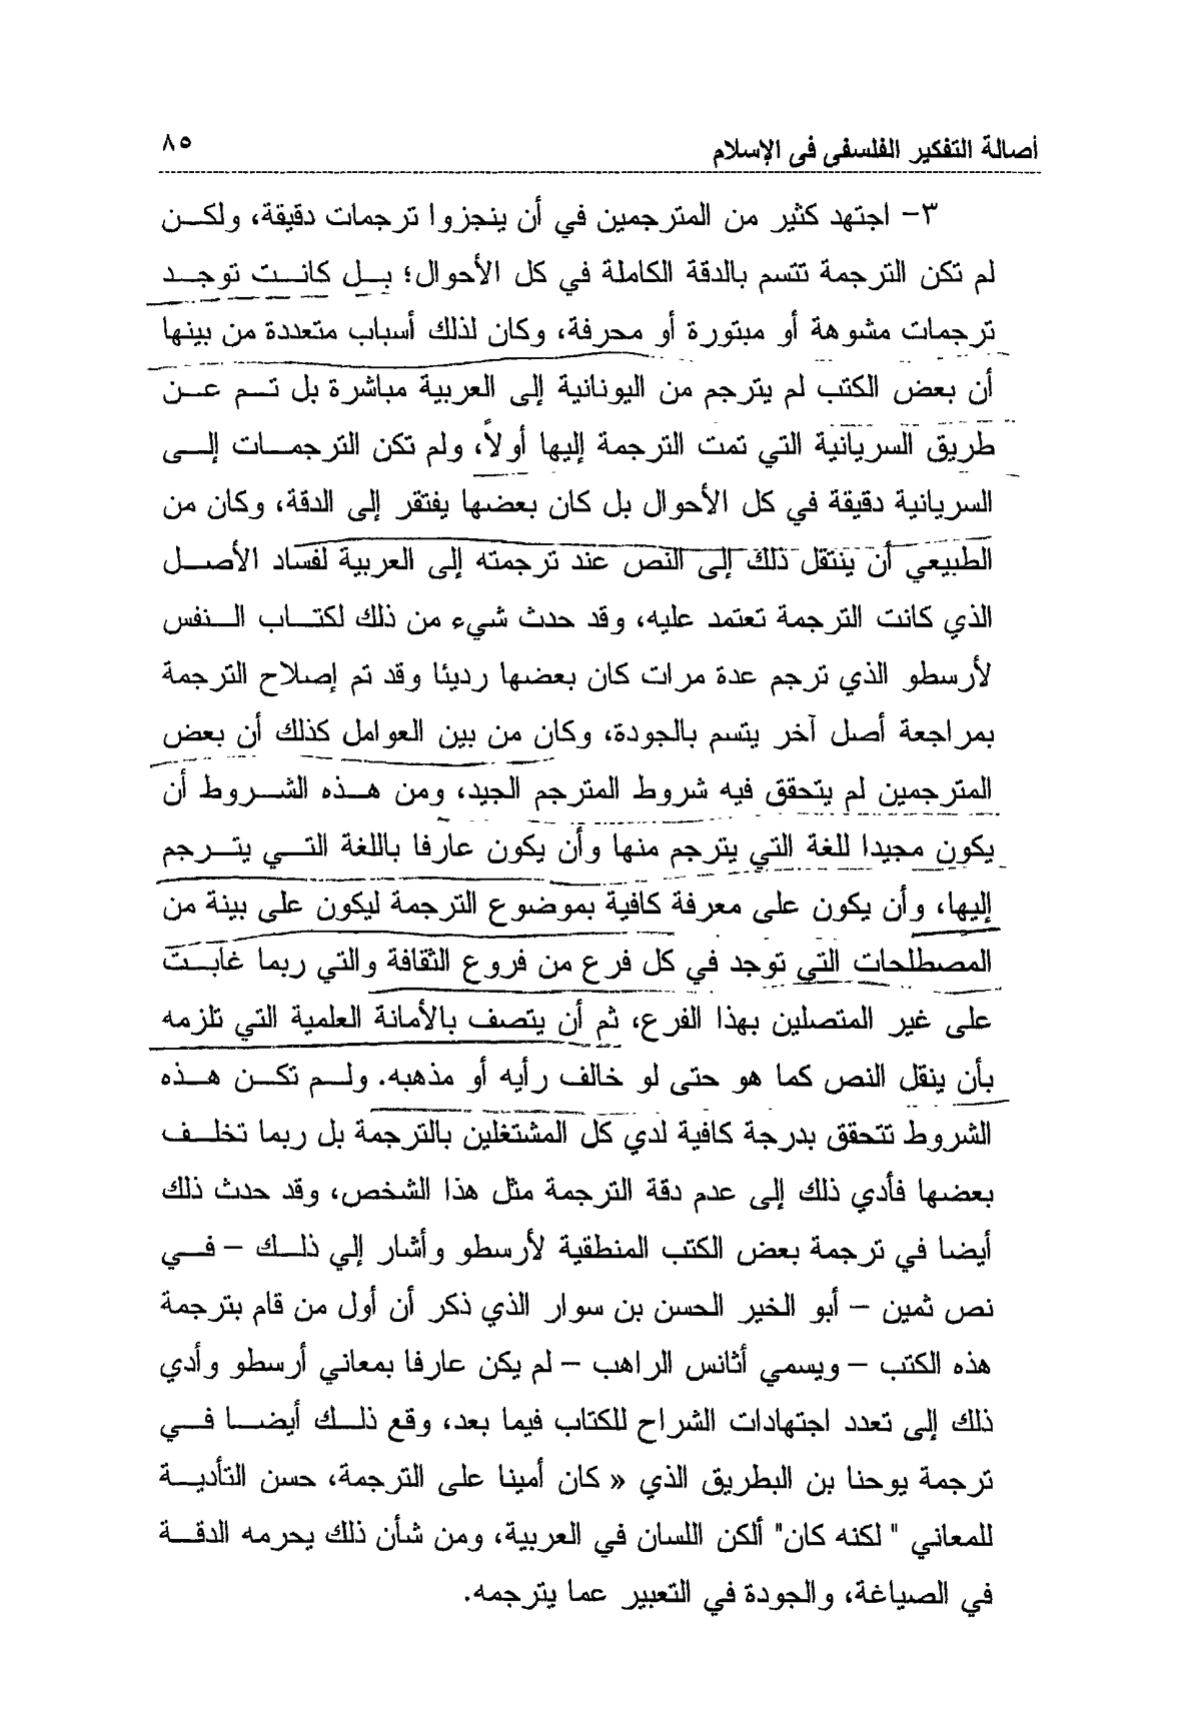 أصالة التفكير الفلسفى فى الإسلام ٨٥
٣- اجتهد كثير من المترجمين في أن ينجزوا ترجمات دقيقة، ولكن
لم تكن الترجمة تتسم بالدقة الكاملة في كل الأحوال؛ بل كانت توجد
ترجمات مشوهة أو مبتورة أو محرفة، وكان لذلك أسباب متعددة من بينها
أن بعض الكتب لم يترجم من اليونانية إلى العربية مباشرة بل تم عن
طريق السريانية التي تمت الترجمة إليها أولاً، ولم تكن الترجمات إلى
السريانية دقيقة في كل الأحوال بل كان بعضها يفتقر إلى الدقة، وكان من
الطبيعي أن ينتقل ذلك إلى النص عند ترجمته إلى العربية لفساد الأصل
الذي كانت الترجمة تعتمد عليه، وقد حدث شيء من ذلك لكتاب النفس
لأرسطو الذي ترجم عدة مرات كان بعضها رديئا وقد تم إصلاح الترجمة
بمراجعة أصل آخر يتسم بالجودة، وكان من بين العوامل كذلك أن بعض
المترجمين لم يتحقق فيه شروط المترجم الجيد، ومن هذه الشروط أن
يكون مجيدا للغة التي يترجم منها وأن يكون عارفا باللغة التي يترجم
إليها، وأن يكون على معرفة كافية بموضوع الترجمة ليكون على بينة من
المصطلحات التي توجد في كل فرع من فروع الثقافة والتي ربما غابت
على غير المتصلين بهذا الفرع، ثم أن يتصف بالأمانة العلمية التي تلزمه
بأن ينقل النص كما هو حتى لو خالف رأيه أو مذهبه. ولم تكن هذه
الشروط تتحقق بدرجة كافية لدي كل المشتغلين بالترجمة بل ربما تخلف
بعضها فأدي ذلك إلى عدم دقة الترجمة مثل هذا الشخص، وقد حدث ذلك
أيضا في ترجمة بعض الكتب المنطقية لأرسطو وأشار إلي ذلك – في
نص ثمين – أبو الخير الحسن بن سوار الذي ذكر أن أول من قام بترجمة
هذه الكتب – ويسمي أثانس الراهب – لم يكن عارفا بمعاني أرسطو وأدي
ذلك إلى تعدد اجتهادات الشراح للكتاب فيما بعد، وقع ذلك أيضا في
ترجمة يوحنا بن البطريق الذي « كان أمينا على الترجمة، حسن التأدية
للمعاني " لكنه كان" ألكن اللسان في العربية، ومن شأن ذلك يحرمه الدقة
في الصياغة، والجودة في التعبير عما يترجمه.